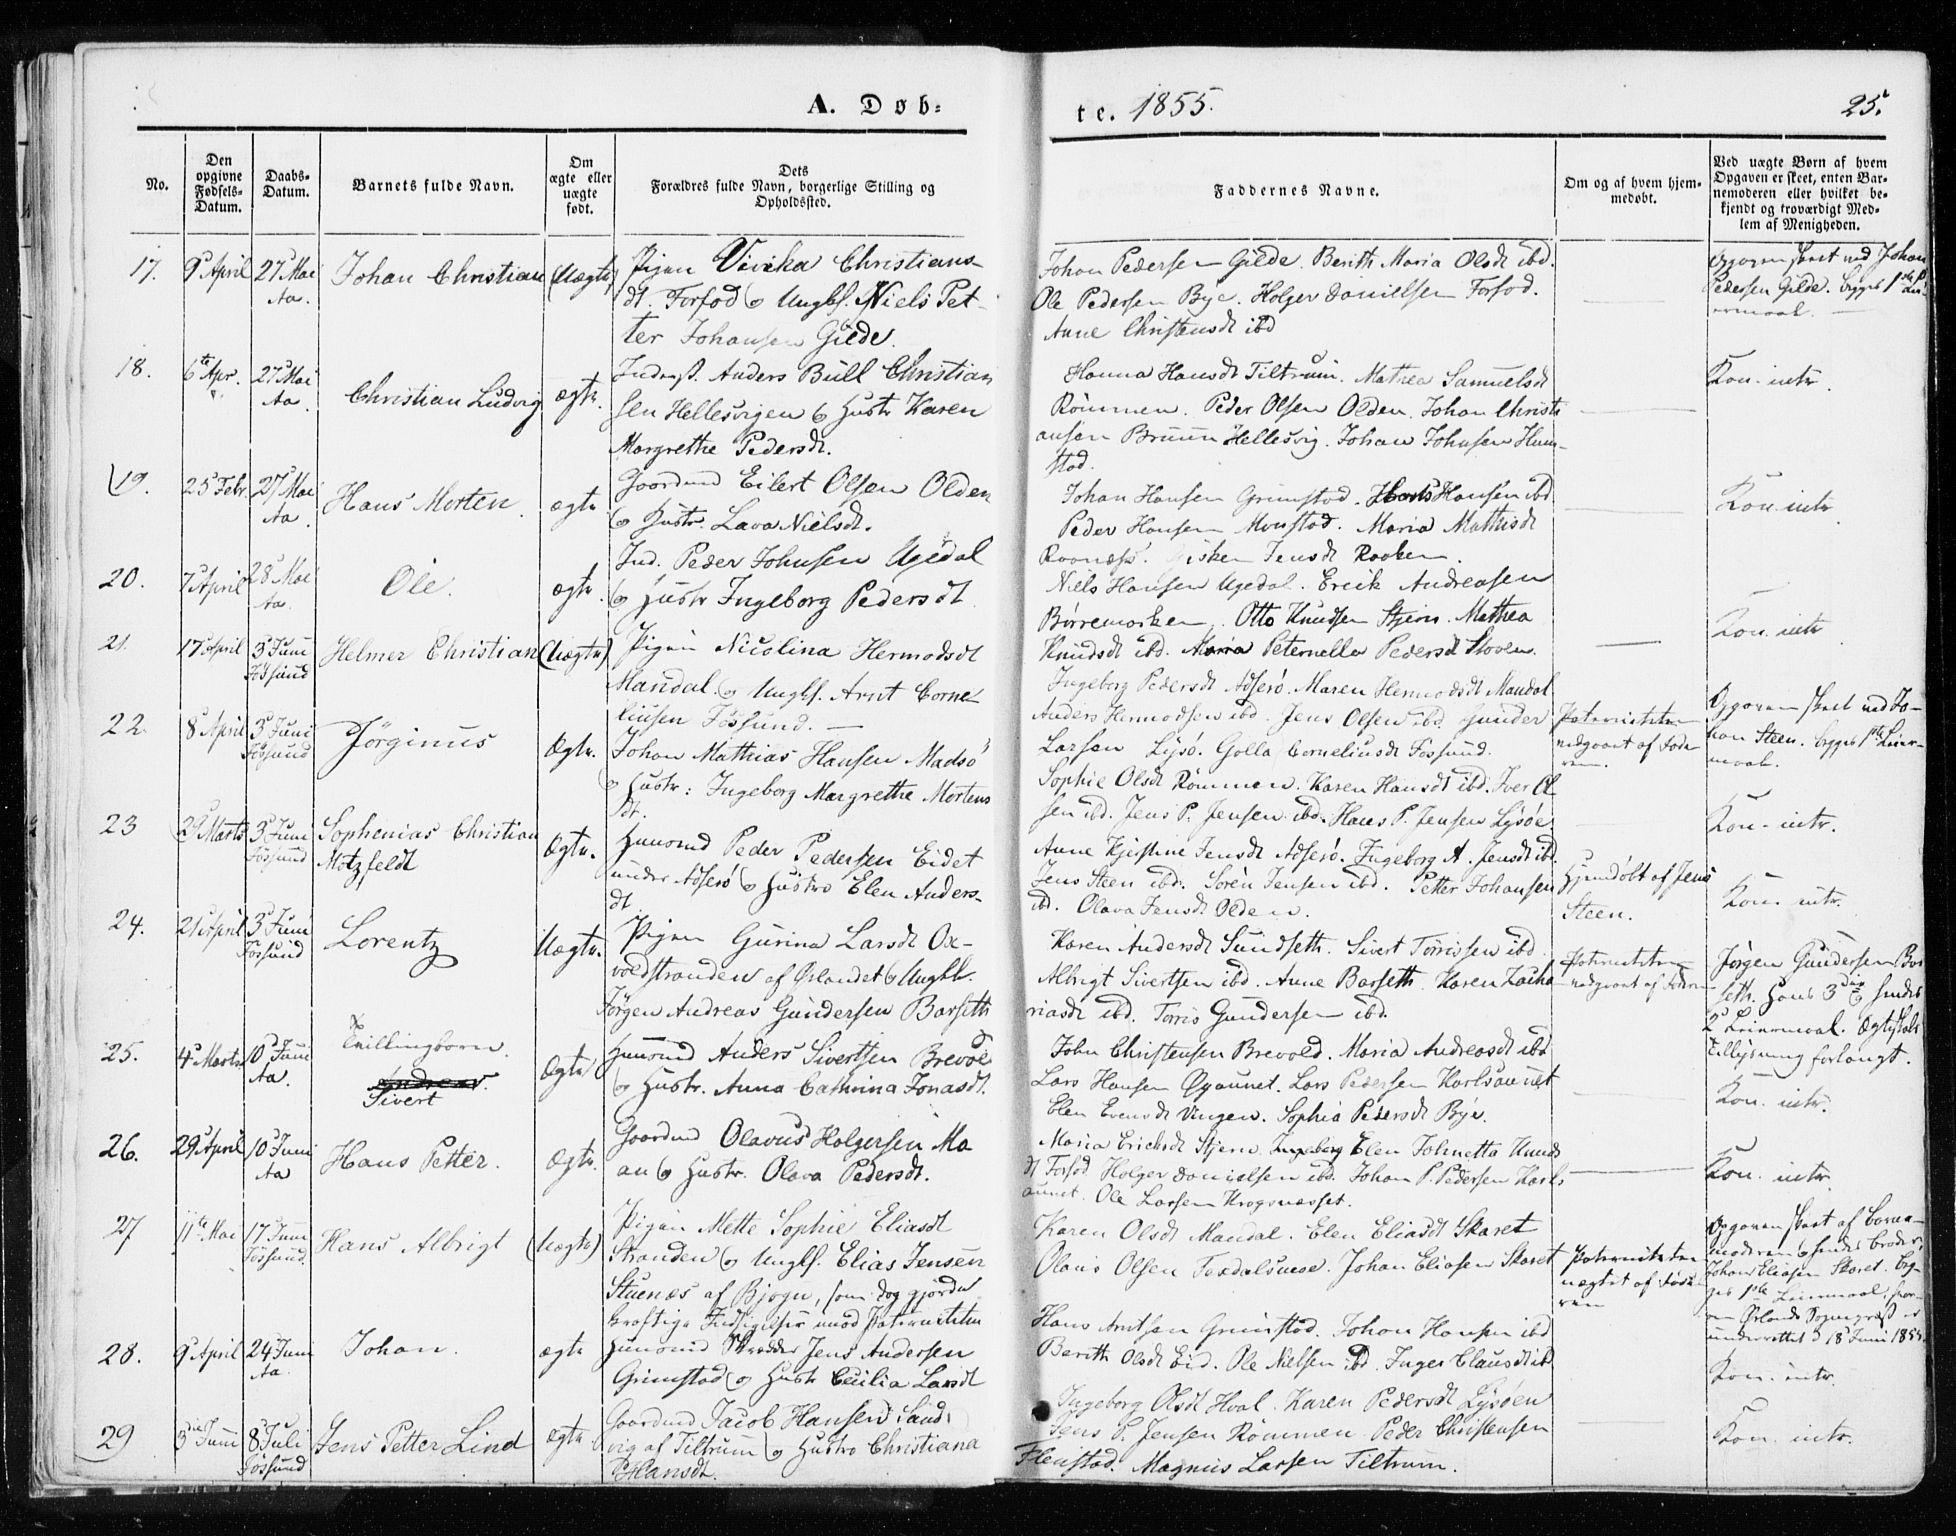 A. Døb-
te. 1855.
25.
No.
Den opgivne Fødsels-Datum.
Daabs-Datum.
Barnets fulde Navn.
Om ægte eller uægte født.
Dets Forældres fulde Navn, borgerlige Stilling og Opholdssted.
Faddernes Navne.
Om og af hvem hjemmedøbt.
Ved uægte Børn af hvem Opgaven er skeet, enten Barnemoderen eller hvilket bekjendt og troværdigt Medlem af Menigheden.
17. 9 April 27 Mai Aa. Johan Christian (Uægte)
Pigen Vivika Christians-
dt. Forfod og Ungkl. Niels Pet-
ter Johansen Gilde.
Johan Pedersen Gilde Berith Maria Olsdt ibd.
Ole Pedersen Bye. Holger Danielsen Forfod.
Anne Christensdt ibd
Opgaven skeet ved Johan
Pedersen Gilde. begges 1ste
18. 6te Apr. 27 Mai Aa. Christian Ludvig ægte.
Inderst. Anders Bull Christian
sen Hellesvigen og Hustr Karen
Margrethe Pedersdt.
Hanna Hansdt Tiltrum. Mathea Samuelsdt
Rømmen. Peder Olsen Olden. Johan Christi
ansen Bruun Hellesvig. Johan Johnsen Hun-
stad.
Kon. intr.
19. 25 Febr. 27 Mai Aa. Hans Morten. ægte
Gaardmd Eilert Olsen Olden
og Hustr. Lava Nielsdt.
Johan Hansen Grimstad. Hansen ibd.
Peder Hansen Monstad. Maria Mathisdt
Raanæss. Gisken Jensdt Raaken.
Kon. intr
20. 7 April 28 Mai Aa. Ole. ægte.
Ind. Peder Johnsen Ugedal
og Hustr Ingeborg Pedersdt
Niels Hansen Ugedal. Erick Andreasen
Børremarken. Otto Knudsen Stjern. Mathea
Knudsdt ibd. Maria Peternella Pedersdt Stoven.
Kon. intr
21. 17 April 3 Juni Føssund Helmer Christian (Uægte)
Pigen Nicolina Hermodsdt
Mandal. og Ungkl. Arnt Corne-
liusen Føssund.
Ingeborg Pedersdt Adserø. Maren Hermodsdt Mandal
Anders Hermodsen ibd. Jens Olsen ibd Gunder
Larsen Lysø. Golla Corneliusdt Fossund.
Paterniteten
nedgaaet af Fade-
ren.
Opgaven skeet ved Jo-
han Steen. begges 1ste Leier-
maal.
22. 8 April 3 Juni Føssund Jørginus Ægte.
Johan Mathias Hansen Madsø
og Hustr: Ingeborg Margrethe Mortens
dt.
Sophie Olsdt Rømmen. Karen Hansdt ibd. Iver Ol
sen ibd. Jens P. Jensen ibd. Hans P. Jensen Lysøe
Kon. intr.
23 29 Marts 3 Juni Føssund Sophenias Christian
Motzfeldt Ægte.
Huusmd Peder Pedersen Eidet
under Adserø og Hustro Elen Anders-
dt
Anne Kjerstine Jensdt Adserø. Ingeborg A. Jensdt ibd.
Jens Steen ibd. Søren Jensen ibd. Petter Johansen
ibd. Olava Jensdt Olden.
Hjemdøbt af Jens
Steen.
Kon. intr.
24. 21 April 3 Juni Føssund Lorentz Uægte.
Pigen Gurina Larsdt Ox-
voldstranden af Ørlandet og Ungkl.
Jørgen Andreas Gundersen Barseth
Karen Andersdt Sundseth. Sivert Torrissen ibd.
Albrigt Sivertsen ibd. Anne Barseth. Karen Zacha
riasdt ibd. Torris Gundersen ibd.
Paterniteten
nedgaaet af Fade
Jørgen Gundersen Bar
seth. Hans 3die og hendes
2 Leiermaal. Ægteskabs
tillysning forlangt.
25. 4 Marts 10 Juni Aa. Tvillingbørn.
Andreas.
Sivert Ægte
Huusmd Anders Sivertsen Brevold
og Hustr. Anna Cathrina Jonasdt.
John Christensen Brevold. Maria Andreasdt ibd
Lars Hansen Opaunet. Lars Pedersen Karlsaunet
Elen Evensdt Vingen. Sophia Pedersdt Bye.
Kon. intr.
26. 29 April 10 Juni Aa Hans Petter. Ægte.
Gaardmd Olavus Holgersen Ma
an og Hustr. Olava Pedersdt.
Maria Ericksdt Stjern. Ingeborg Elen Johnetta Knuds
dt Forfod Holger Danielsen ibd. Johan P. Pedersen Karls
aunet. Ole Larsen Krogsnæsset.
Kon. intr.
27 11te Mai 17 Juni Føssund. Hans Albrigt (Uægte)
Pigen Mette Sophie Eliasdt
Stranden og Ungkl. Elias Jensen
Stuenæs af Bjogn, som dog gjorde
kraftige Indsigelser mod Paterniteten
Karen Olsdt Mandal. Elen Eliasdt Skaret
Olaus Olsen Texdalsnese. Johan Eliasen Skaret
Paterniteten
nægtet af Fade
ren
Opgaven skeet af Barne-
moderen og hendes Broder,
Johan Eliasen Skaret. beg-
ges 1ste Leiermaal, hvor-
om Ørlands Sognepræst er
underrettet 18 Juni 1855.
28. 9 April 24 Juni Aa. Johan. ægte
Huusmd Skrædder Jens Andersen
Grimstad og Hustr Cecilia Larsdt
Hans Arntsen Grimstad. Johan Hansen ibd
Berith Olsdt Eid. Ole Nielsen ibd. Inger Clausdt ibd
Kon. intr.
29 3die Juni 8 Juli Føssund Jens Petter Lind ægte
Gaardmd Jacob Hansen Sand-
vig af Tiltrum og Hustro Christiana
P Hansdt.
Ingeborg Olsdt Hval. Karen Pedersdt Lysøen
Jens P. Jensen Rømmen. Peder Christensen
Flenstad. Magnus Larsen Tiltrum.
Kon. intr.